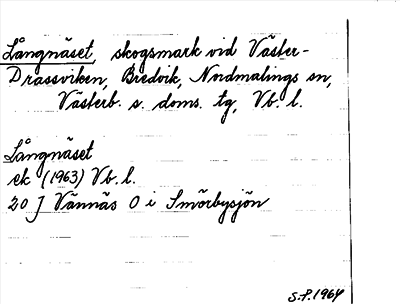 Långnäset, skogsmark vid Väster-
Drassviken, Bredvik, Nordmalings sn,
Västerb. s. doms. tg, Vb. l.
Långnäset
ek (1963) Vb. l.
20 J Vännäs O i Smörbysjön
S.P. 1964